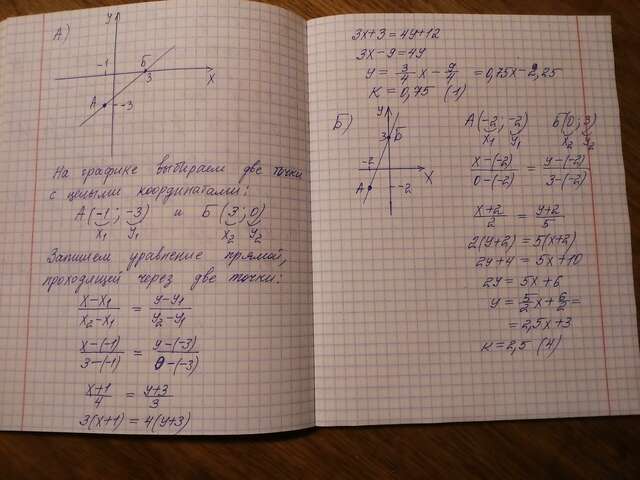 А)
У
-1
Б
3
X
А
-3
На графике выбираем две точки
с целыми координатами:
А(-1; -3) и Б(3; 0)
x₁ y₁ x₂ y₂
Запишем уравнение прямой,
проходящей через две точки:
(x-x₁)/(x₂-x₁) = (y-y₁)/(y₂-y₁)
(x-(-1))/(3-(-1)) = (y-(-3))/(0-(-3))
(x+1)/4 = (y+3)/3
3(x+1) = 4(y+3)
3x+3 = 4y+12
3x-9 = 4y
y = 3/4 x - 9/4 = 0,75x-2,25
к = 0,75 (1)
Б)
У
3
Б
-2
X
А
-2
А(-2; -2) Б(0; 3)
x₁ y₁ x₂ y₂
(x-(-2))/(0-(-2)) = (y-(-2))/(3-(-2))
(x+2)/2 = (y+2)/5
2(y+2) = 5(x+2)
2y+4 = 5x+10
2y = 5x+6
y = 5/2 x + 6/2 =
= 2,5x+3
к = 2,5 (4)